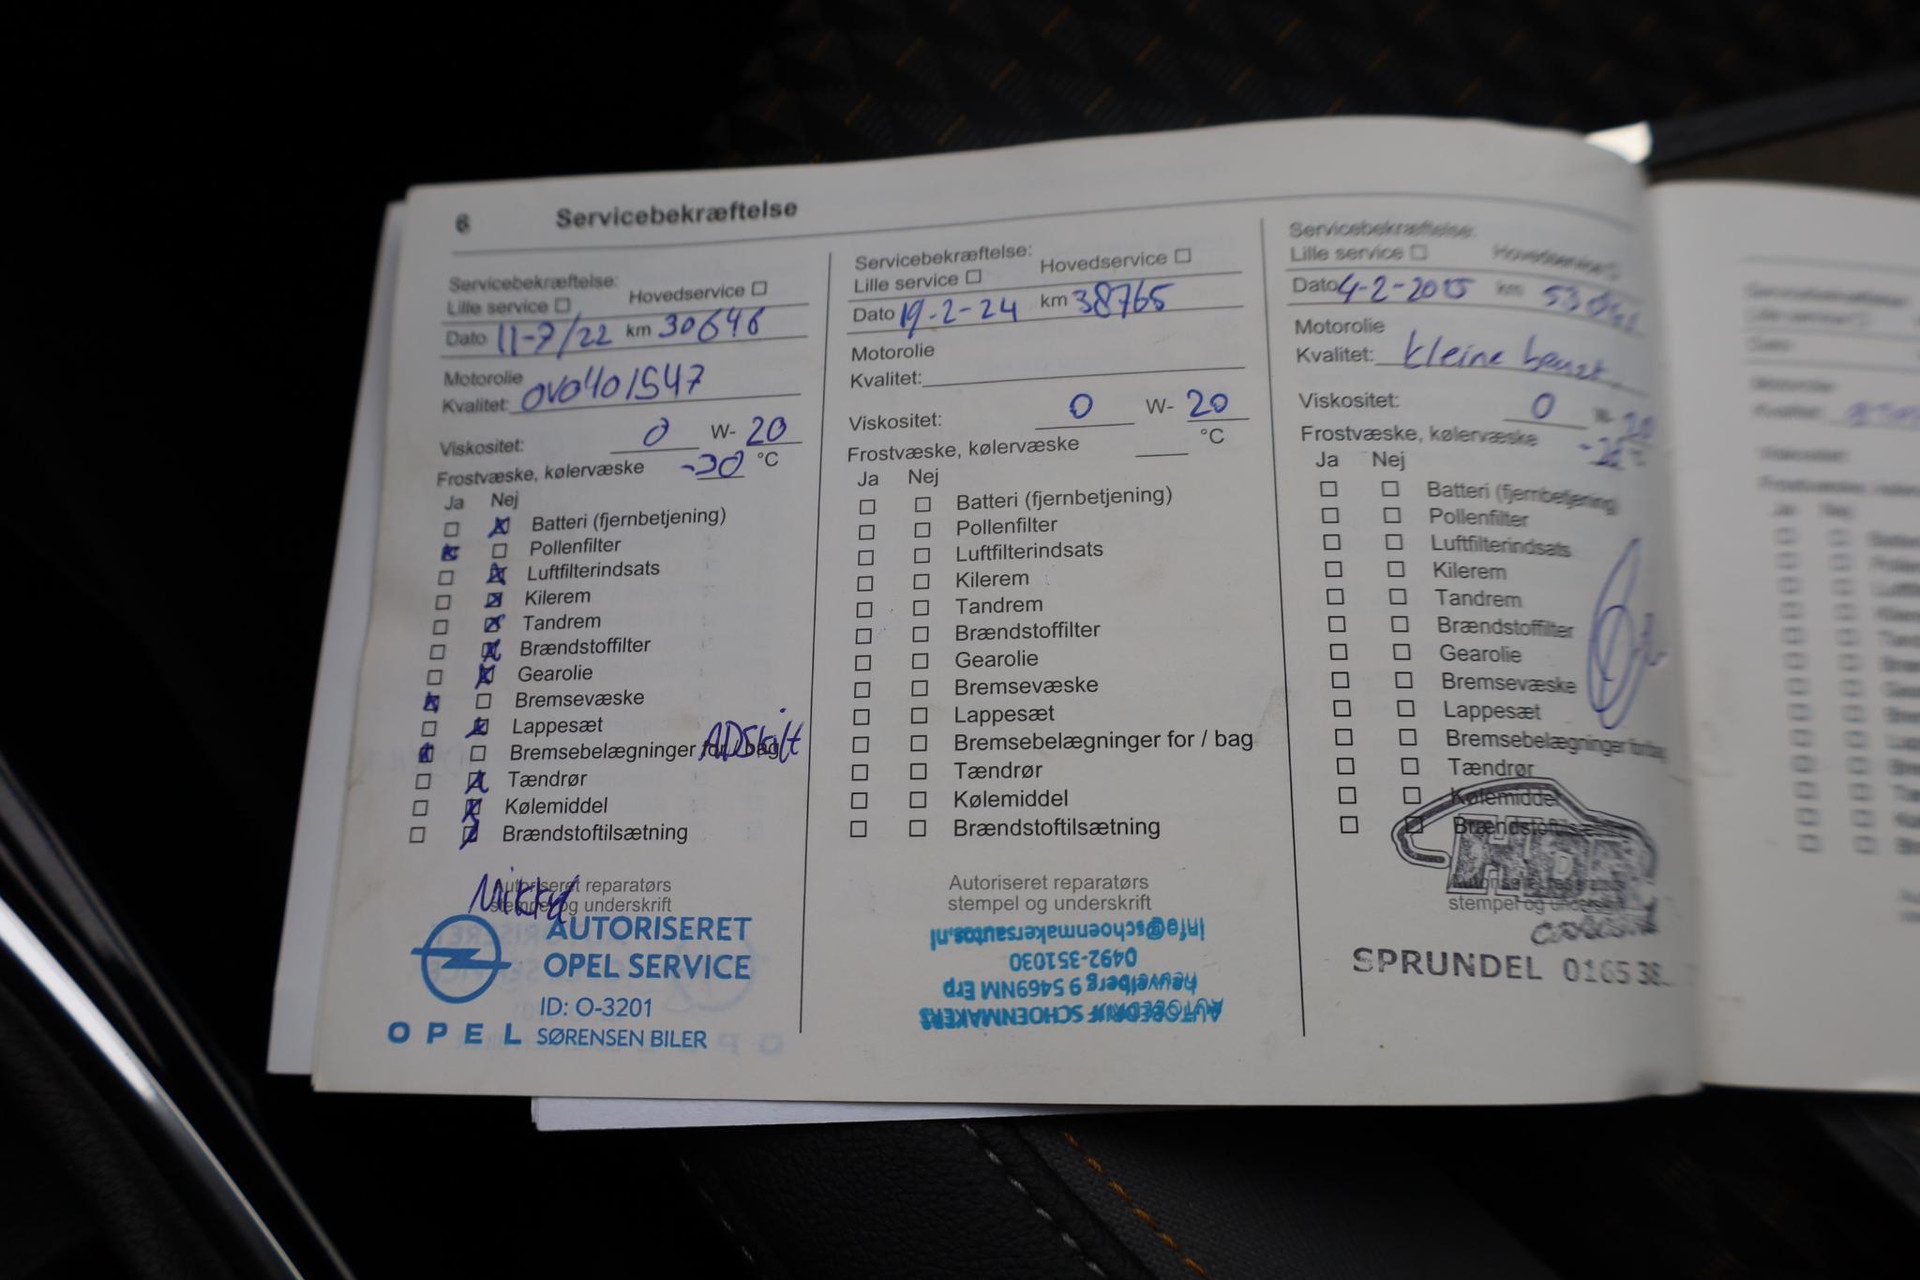 6 Servicebekræftelse
Servicebekræftelse:
Lille service Hovedservice
Dato 11-7/22 km 30646
Motorolie
Kvalitet: OV0401547
Viskositet: 0 W- 20
Frostvæske, kølervæske -30 °C
Ja Nej
Batteri (fjernbetjening)
Pollenfilter
Luftfilterindsats
Kilerem
Tandrem
Brændstoffilter
Gearolie
Bremsevæske
Lappesæt
Bremsebelægninger for / bag
Tændrør
Kølemiddel
Brændstoftilsætning
Autoriseret reparatørs
stempel og underskrift
AUTORISERET
OPEL SERVICE
ID: O-3201
OPEL SØRENSEN BILER
Servicebekræftelse:
Lille service Hovedservice
Dato 19-2-24 km 38765
Motorolie
Kvalitet:
Viskositet: 0 W- 20
Frostvæske, kølervæske °C
Ja Nej
Batteri (fjernbetjening)
Pollenfilter
Luftfilterindsats
Kilerem
Tandrem
Brændstoffilter
Gearolie
Bremsevæske
Lappesæt
Bremsebelægninger for / bag
Tændrør
Kølemiddel
Brændstoftilsætning
Autoriseret reparatørs
stempel og underskrift
AUTOBEDRIJF SCHOENMAKERS
Heuvelberg 9 5469NM Erp
0492-351030
info@schoenmakersautos.nl
Servicebekræftelse:
Lille service Hovedservice
Dato 4-2-2025 km
Motorolie
Kvalitet: kleine beurt
Viskositet: 0 W- 20
Frostvæske, kølervæske
Ja Nej
Batteri (fjernbetjening)
Pollenfilter
Luftfilterindsats
Kilerem
Tandrem
Brændstoffilter
Gearolie
Bremsevæske
Lappesæt
Bremsebelægninger for / bag
Tændrør
Kølemiddel
stempel og
SPRUNDEL 0165 38